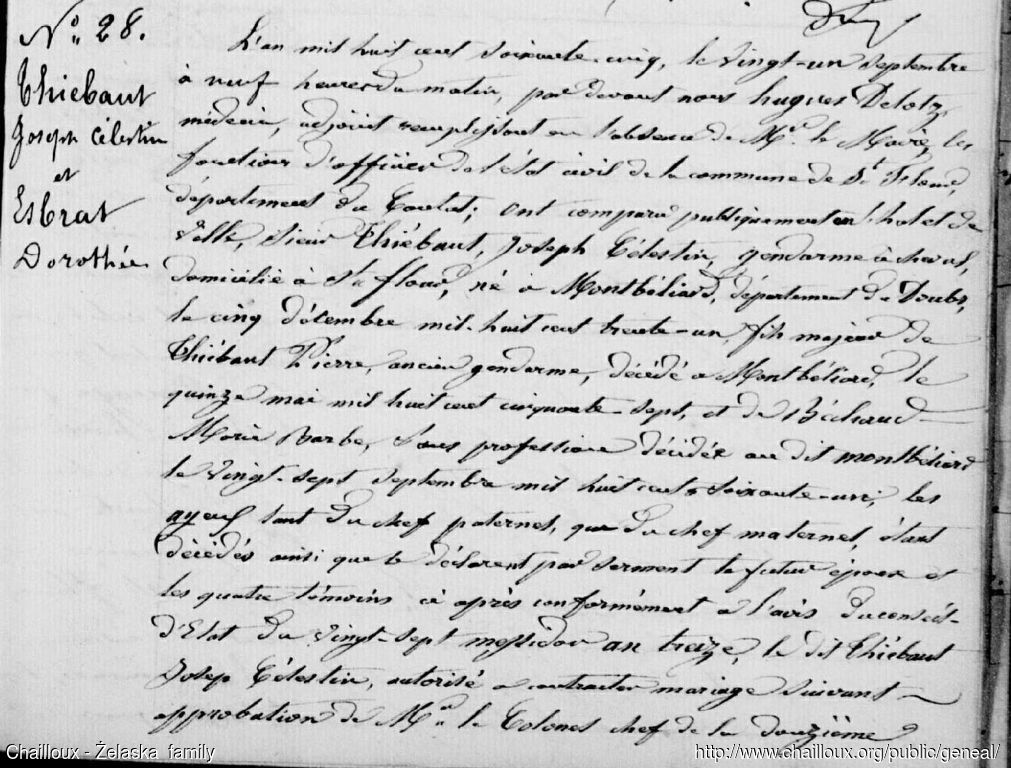 N°. 28.
Thiébaut
Joseph Célestin
et
Esbrat
Dorothée
L'an mil huit cent soixante-cinq, le vingt-un septembre
à neuf heures du matin, par devant nous hugues
médecin, adjoint remplissant en l'absence de Mr. le Maire, les
fonctions d'officier de l'état civil de la commune de St. Flour,
département du Cantal; ont comparu publiquement en l'hotel de
Ville, sieur Thiébaut, Joseph Célestin, gendarme à cheval,
domicilié à St. flour, né à Montbéliard, département du Doubs,
le cinq décembre mil-huit cent trente-un, fils majeur de
Thiébaut Pierre, ancien gendarme, décédé à Montbéliard, le
quinze mai mil huit cent cinquante-sept, et de Béchaud
Marie Barbe, sans profession décédée au dit montbéliard
le vingt-sept septembre mil huit cent soixante-un; les
ayeuls tant du chef paternel, que du chef maternel, étant
décédés ainsi que le déclarent par serment le futur époux et
les quatre témoins ci après conformément à l'avis du conseil-
d'Etat du vingt-sept messidor an treize, le dit Thiébaut
Josep Célestin, autorisé à contracter mariage suivant
approbation de Mr. le Colonel chef de la douzième
Chailloux - Želaska family
http://www.chailloux.org/public/geneal/